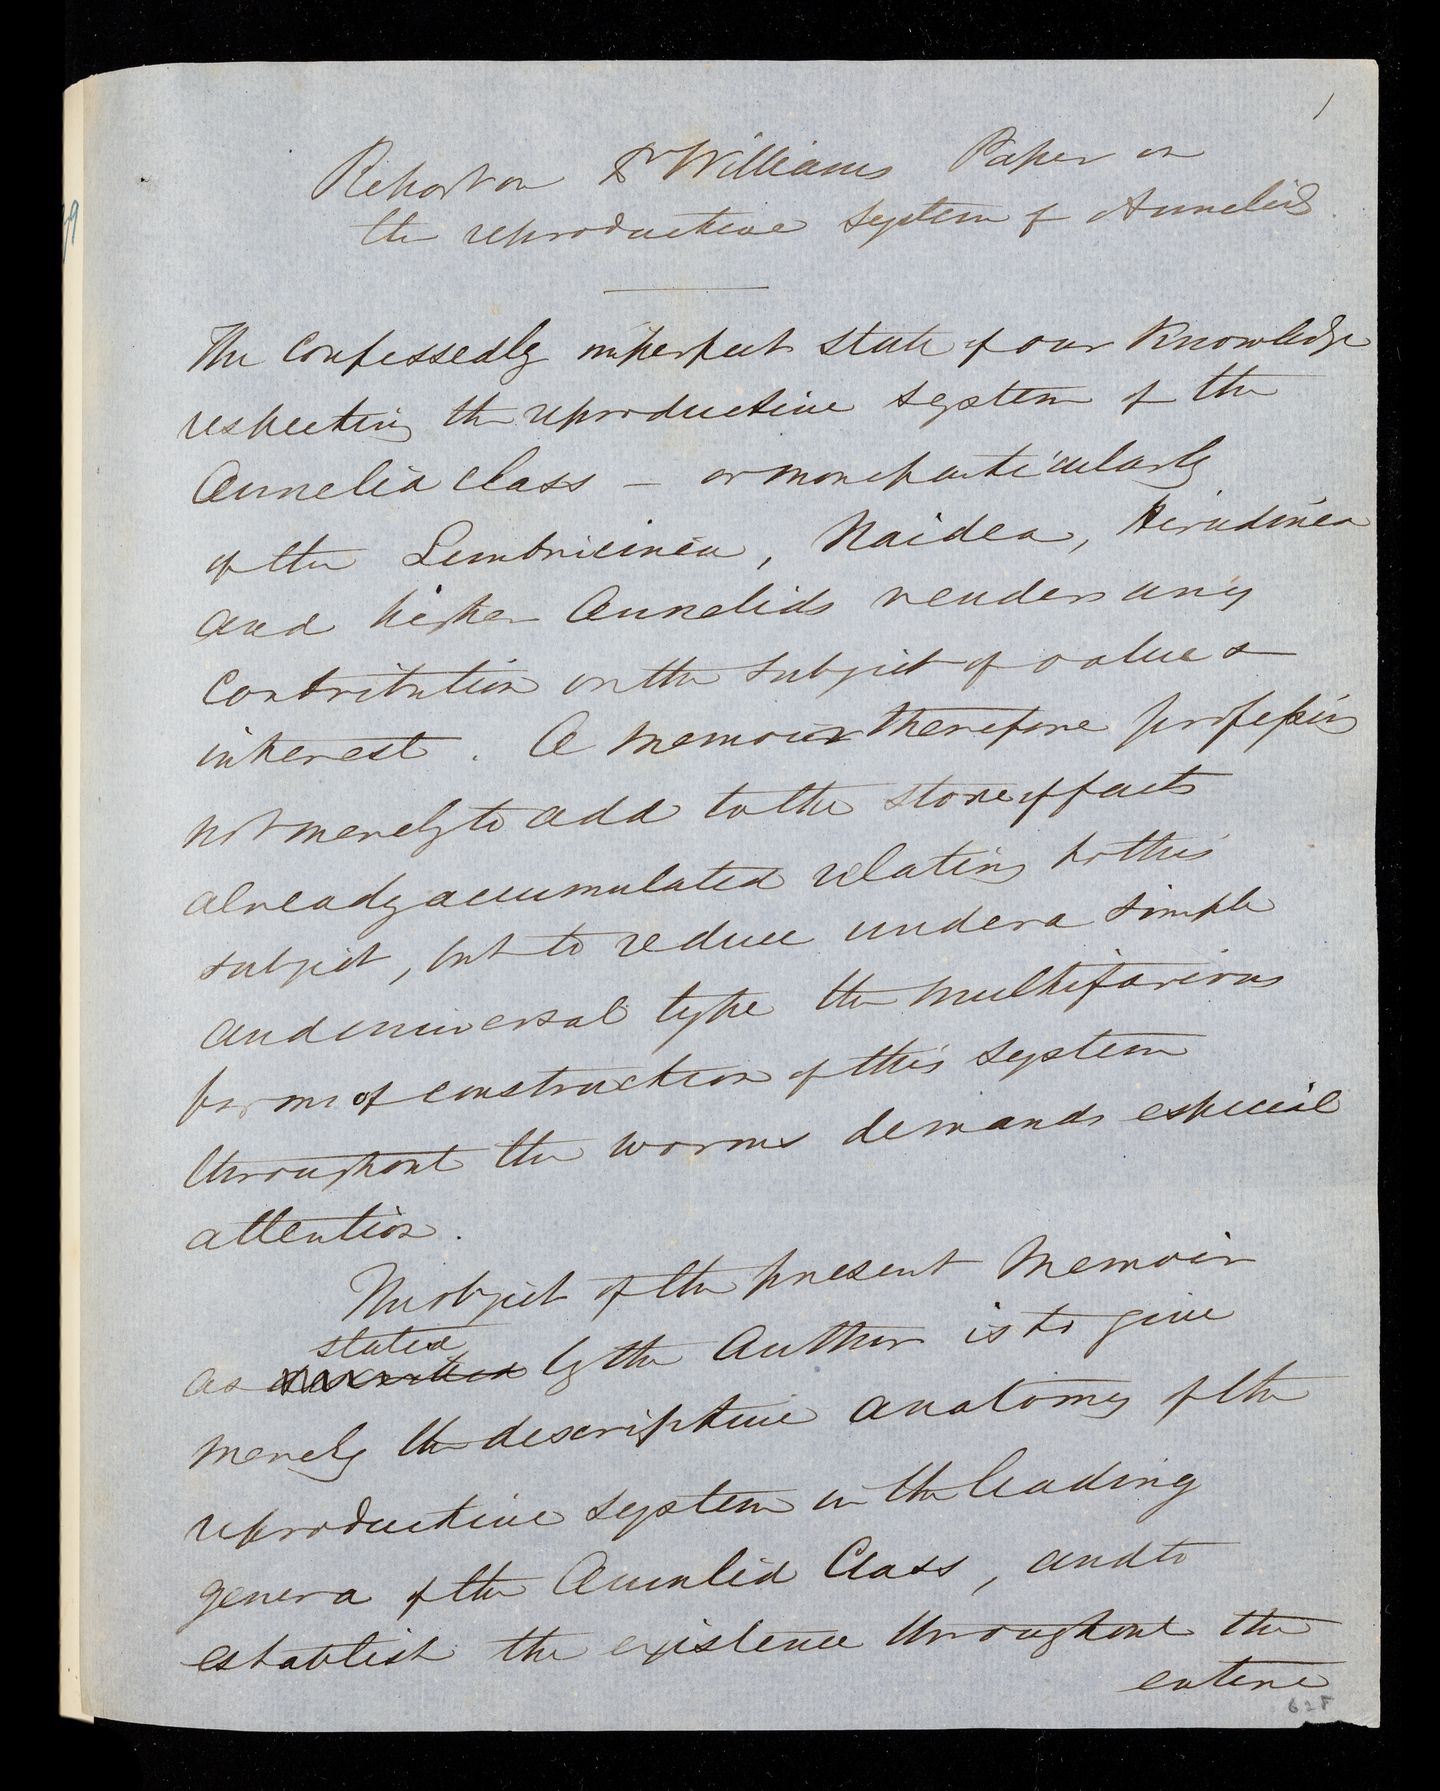 1
Report on Dr Williams Paper on
the reproductive system of Annelids
The confessedly imperfect state of our Knowledge
respecting the reproductive system of the
Annelid class – or more particularly
of the Lumbricinea, Naidea, Hirudinea
and higher Annelids renders any
contribution on the subject of value &
interest. A memoir therefore professing
not merely to add to the store of facts
already accumulated relating to this
subject, but to reduce under a simple
and universal type the multifarious
forms of construction of this system
throughout the worms demands especial
attention.
The object of the present Memoir
stated
as by the Author is to give
merely the descriptive anatomy of the
reproductive system in the leading
genera of the Annelid Class, and to
establish the existence throughout the
entire